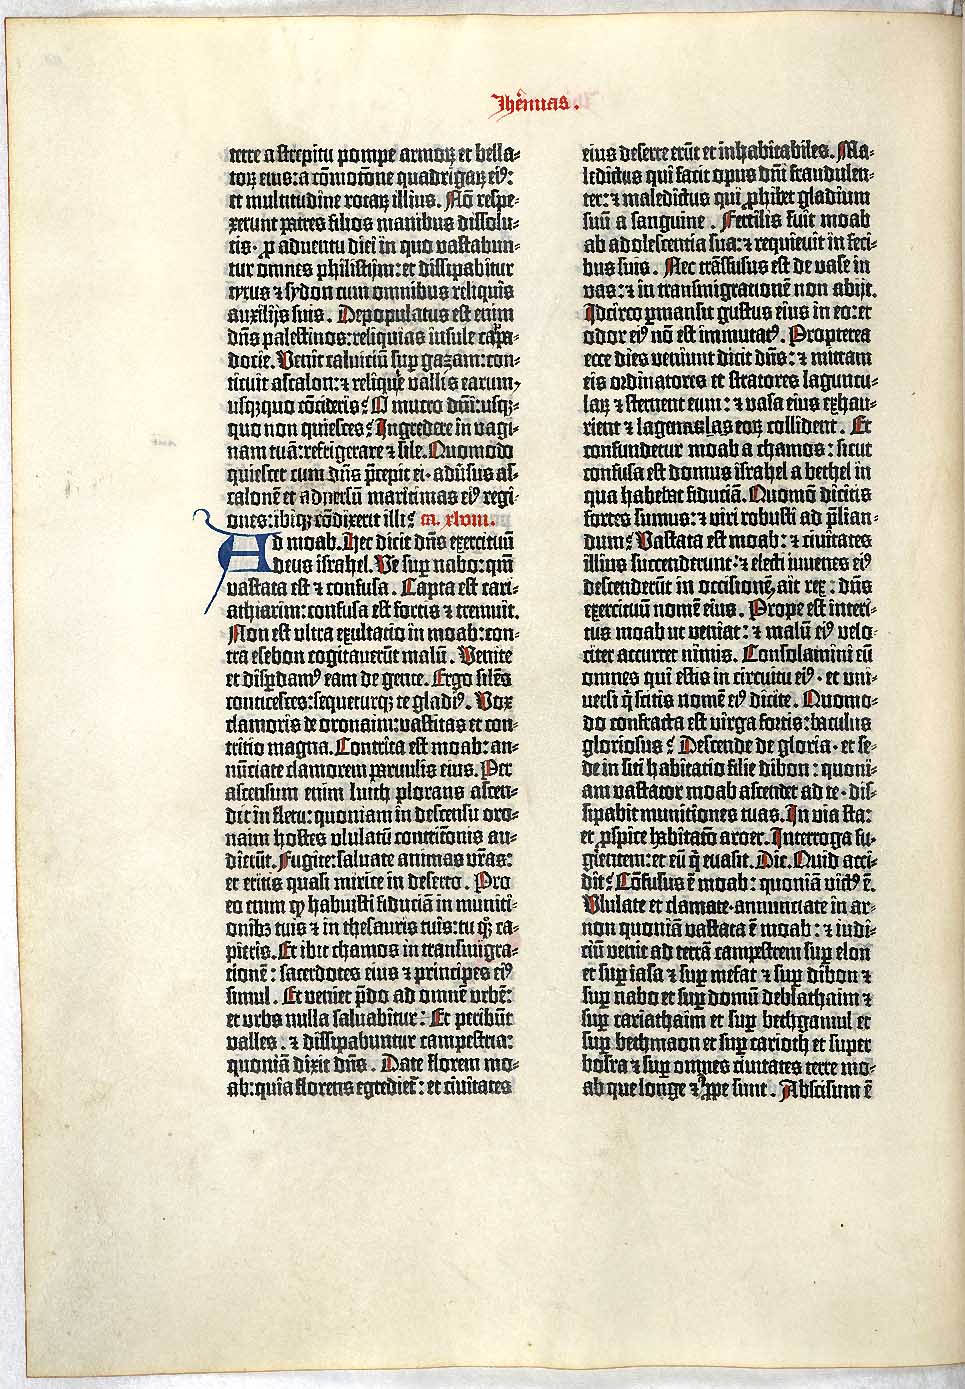 Jherēmias.
terre a strepitu pompe armoꝝ et bella⸗
toꝝ eius: a cōmotōne quadrigaꝝ eiꝰ:
et multitudine rotaꝝ illius. Nō respe⸗
xerunt patres filios manibus dissolu⸗
tis. ꝓ aduentu diei in quo vastabun⸗
tur omnes philistijm: et dissipabitur
tyrus ⁊ sydon cum omnibus reliquis
auxilijs suis. Depopulatus est enim
dn̄s palestinos: reliquias insule cappa⸗
docie. Venit caluiciū suꝑ gazam: con⸗
ticuit ascalon: ⁊ reliquie vallis earum,
usqꝫquo cōcideris? O mucro dn̄i: usqꝫ⸗
quo non quiesces? Ingredere in vagi⸗
nam tuā: refrigerare ⁊ sile. Quomodo
quiescet cum dn̄s p̄cepit ei· adūsus as⸗
calonē et aduersū maritimas eiꝰ regi⸗
ones: ibiqꝫ cōdixerit illi? ca. xlviii.
Ad moab. Hec dicit dn̄s exercituū
deus israhel. Ve suꝑ nabo: qm̄
vastata est ⁊ confusa. Capta est cari⸗
athiarim: confusa est fortis ⁊ tremuit.
Non est vltra exultatio in moab: con⸗
tra esebon cogitauerūt malū. Venite
et disꝑdamꝰ eam de gente. Ergo silēs
conticesces: sequeturqꝫ te gladiꝰ. Vox
clamoris de oronaim: vastitas et con⸗
tritio magna. Contrita est moab: an⸗
nūciate clamorem ꝑuulis eius. Per
ascensum enim luith plorans ascen⸗
dit in fletu: quoniam in descensu oro⸗
naim hostes vlulatū contritōnis au⸗
dierūt. Fugite: saluate animas vr̄as:
et eritis quasi mirice in deserto. Pro
eo enim ꝙ habuisti fiduciā in muniti⸗
onibꝫ tuis ⁊ in thesauris tuis: tu qꝫ ca⸗
pieris. Et ibit chamos in transmigra⸗
tionē: sacerdotes eius ⁊ principes eiꝰ
simul. Et veniet p̄do ad omnē vrbē:
et vrbs nulla saluabitur: Et peribūt
valles. ⁊ dissipabuntur campestria:
quoniā dixit dn̄s. Date florem mo⸗
ab: quia florens egrediet̄: et ciuitates
eius deserte erūt et inhabitabiles. Ma⸗
ledictus qui facit opus dn̄i fraudulen⸗
ter: ⁊ maledictus qui ꝓhibet gladium
suū a sanguine. Fertilis fuit moab
ab adolescentia sua: ⁊ requieuit in feci⸗
bus suis. Nec trāsfusus est de vase in
vas: ⁊ in transmigrationē non abijt.
Idcirco ꝑmansit gustus eius in eo: et
odor eiꝰ nō est immutatꝰ. Propterea
ecce dies veniunt dicit dn̄s: ⁊ mittam
eis ordinatores et stratores laguncu⸗
laꝝ ⁊ sternent eum: ⁊ vasa eius exhau⸗
rient ⁊ lagenas eoꝝ collident. Et
confundetur moab a chamos: sicut
confusa est domus israhel a bethel in
qua habebat fiduciā. Quomō dicitis
fortes sumus: ⁊ viri robusti ad p̄lian⸗
dum? Vastata est moab: ⁊ ciuitates
illius succenderunt: ⁊ electi iuuenes eiꝰ
descenderūt in occisionē, ait rex: dn̄s
exercituū nomē eius. Prope est interi⸗
tus moab ut veniat: ⁊ malū eiꝰ velo⸗
citer accurret nimis. Consolamini eū
omnes qui estis in circuitu eiꝰ· et uni⸗
uersi q̄ scitis nomē eiꝰ dicite. Quomo⸗
do confracta est virga fortis: baculus
gloriosus? Descende de gloria· et se⸗
de in siti habitatio filie dibon: quoni⸗
am vastator moab ascendet ad te· dis⸗
sipabit munitiones tuas. In via sta:
et ꝓspice habitatō aroer. Interroga fu⸗
gientem: et eū q̄ euasit. Dic. Quid acci⸗
dit? Cōfusus ē moab: quoniā victꝰ ē.
Vlulate et clamate· annunciate in ar⸗
non quoniā vastata ē moab: ⁊ iudi⸗
ciū venit ad terrā campestrem suꝑ elon
et suꝑ iasa ⁊ suꝑ mefat ⁊ suꝑ dibon ⁊
suꝑ nabo et suꝑ domū deblathaim ⁊
suꝑ cariathaim et suꝑ bethgamul et
suꝑ bethmaon et suꝑ carioth et super
bosra ⁊ suꝑ omnes ciuitates terre mo⸗
ab que longe ⁊ ꝓpe sunt. Abscisum ē